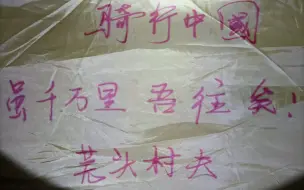 骑行中國
虽千万里 吾往矣!
芜头村夫